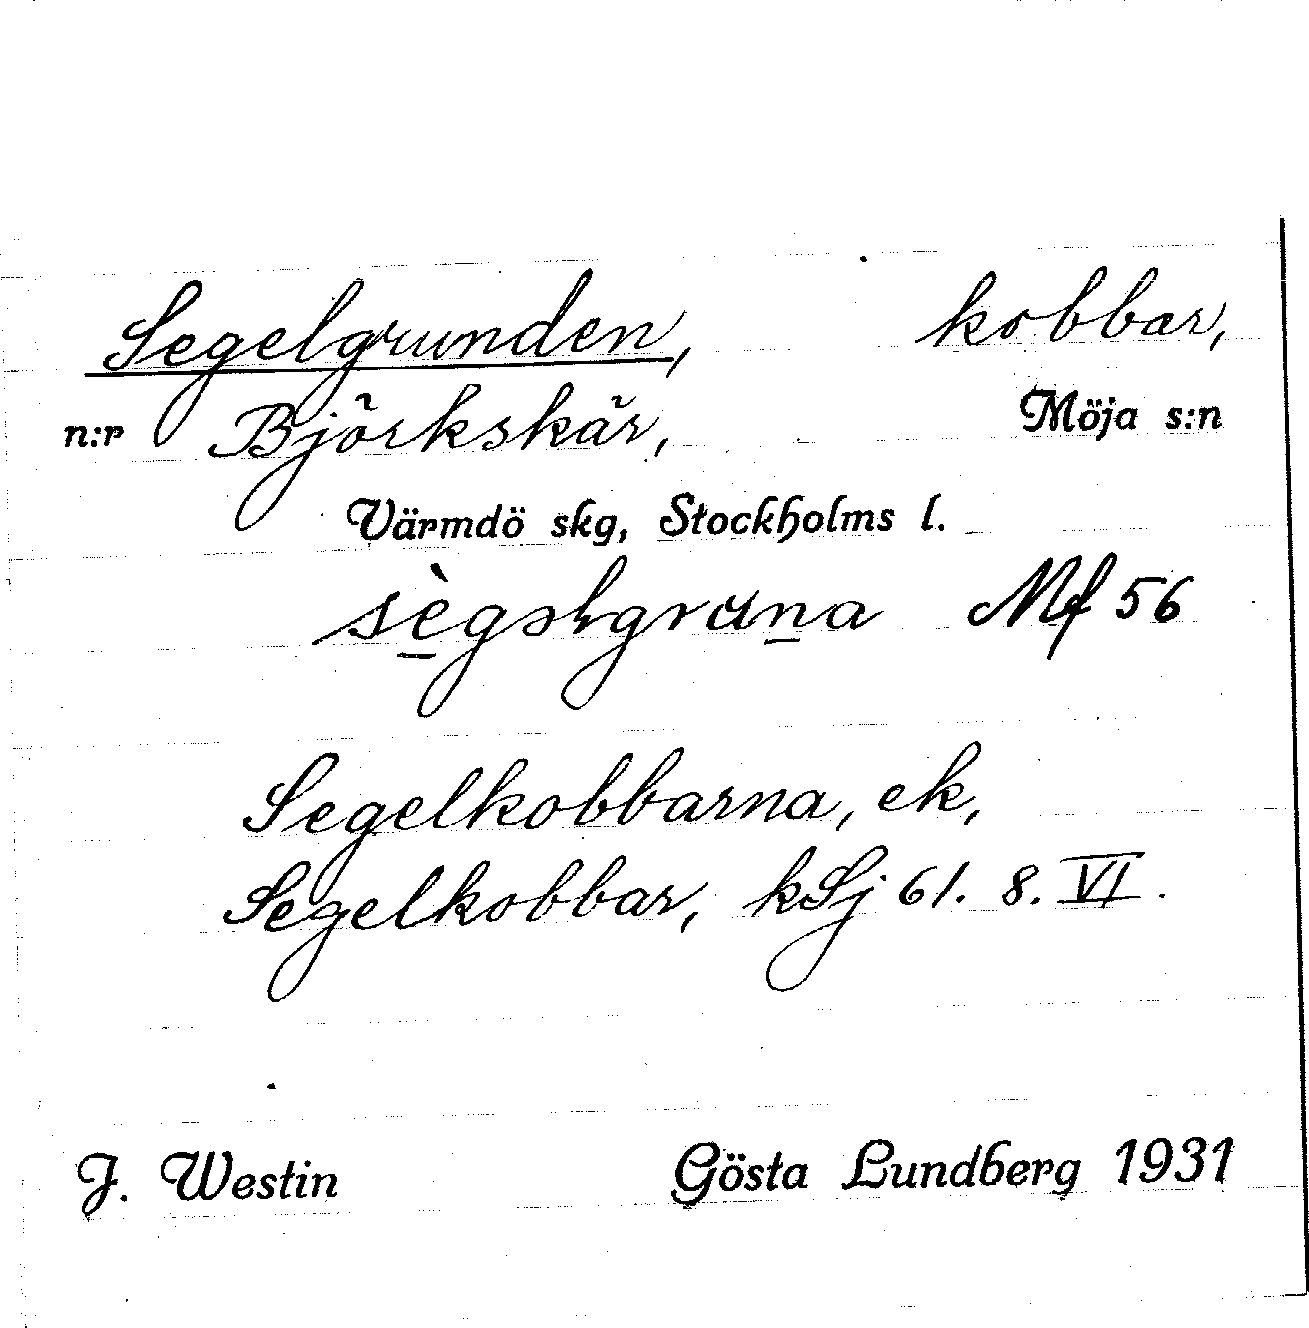 Segelgrunden, kobbar,
n:r Björkskär, Möja s:n
Värmdö skg, Stockholms l.
Mf 56
Segelkobbarna, ek,
Segelkobbar, kSj 61. 8. VI.
J. Westin Gösta Lundberg 1931